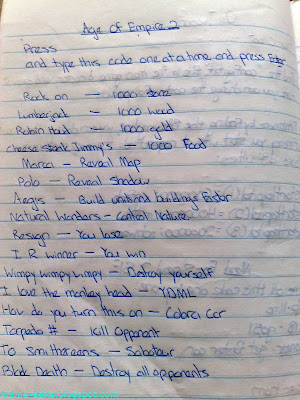 Age Of Empire 2
Press
and type this code one at a time and press Enter
Rock on — 1000 stone
Lumberjack — 1000 wood
Robin Hood — 1000 gold
cheese steak Jimmy's — 1000 Food
Marco — Reveal Map
Polo — Reveal shadow
Aegis — Build unit and buildings Faster
Natural Wonders — Control Nature
Resign — You lose
I R winner — You win
Wimpy Wimpy Wimpy — Destroy yourself
I love the monkey head — YDML
How do you turn this on — Cobra Car
Torpedo # — Kill Opponent
To smithereens — Saboteur
Black Death — Destroy all opponents